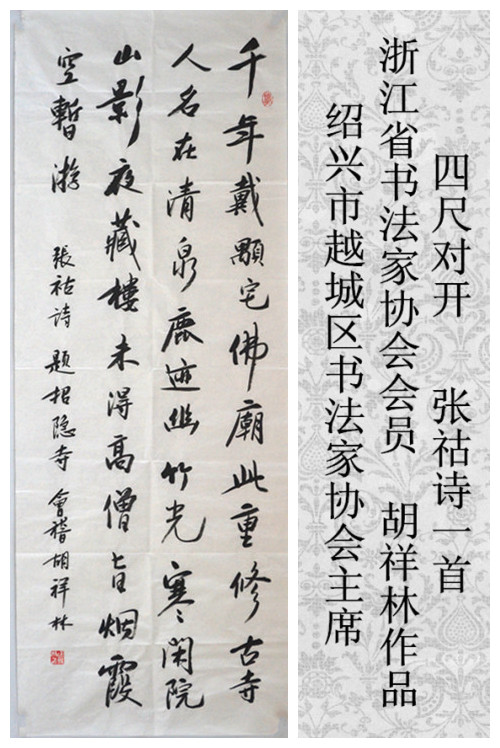 四尺对开 张祜诗一首
浙江省书法家协会会员 胡祥林作品
绍兴市越城区书法家协会主席
千年戴顒宅佛廟此重修古寺
人名在清泉鹿迹幽竹光寒閑院
山影夜藏樓未得高僧旨烟霞
空暫游 張祜诗 題招隐寺 會稽胡祥林